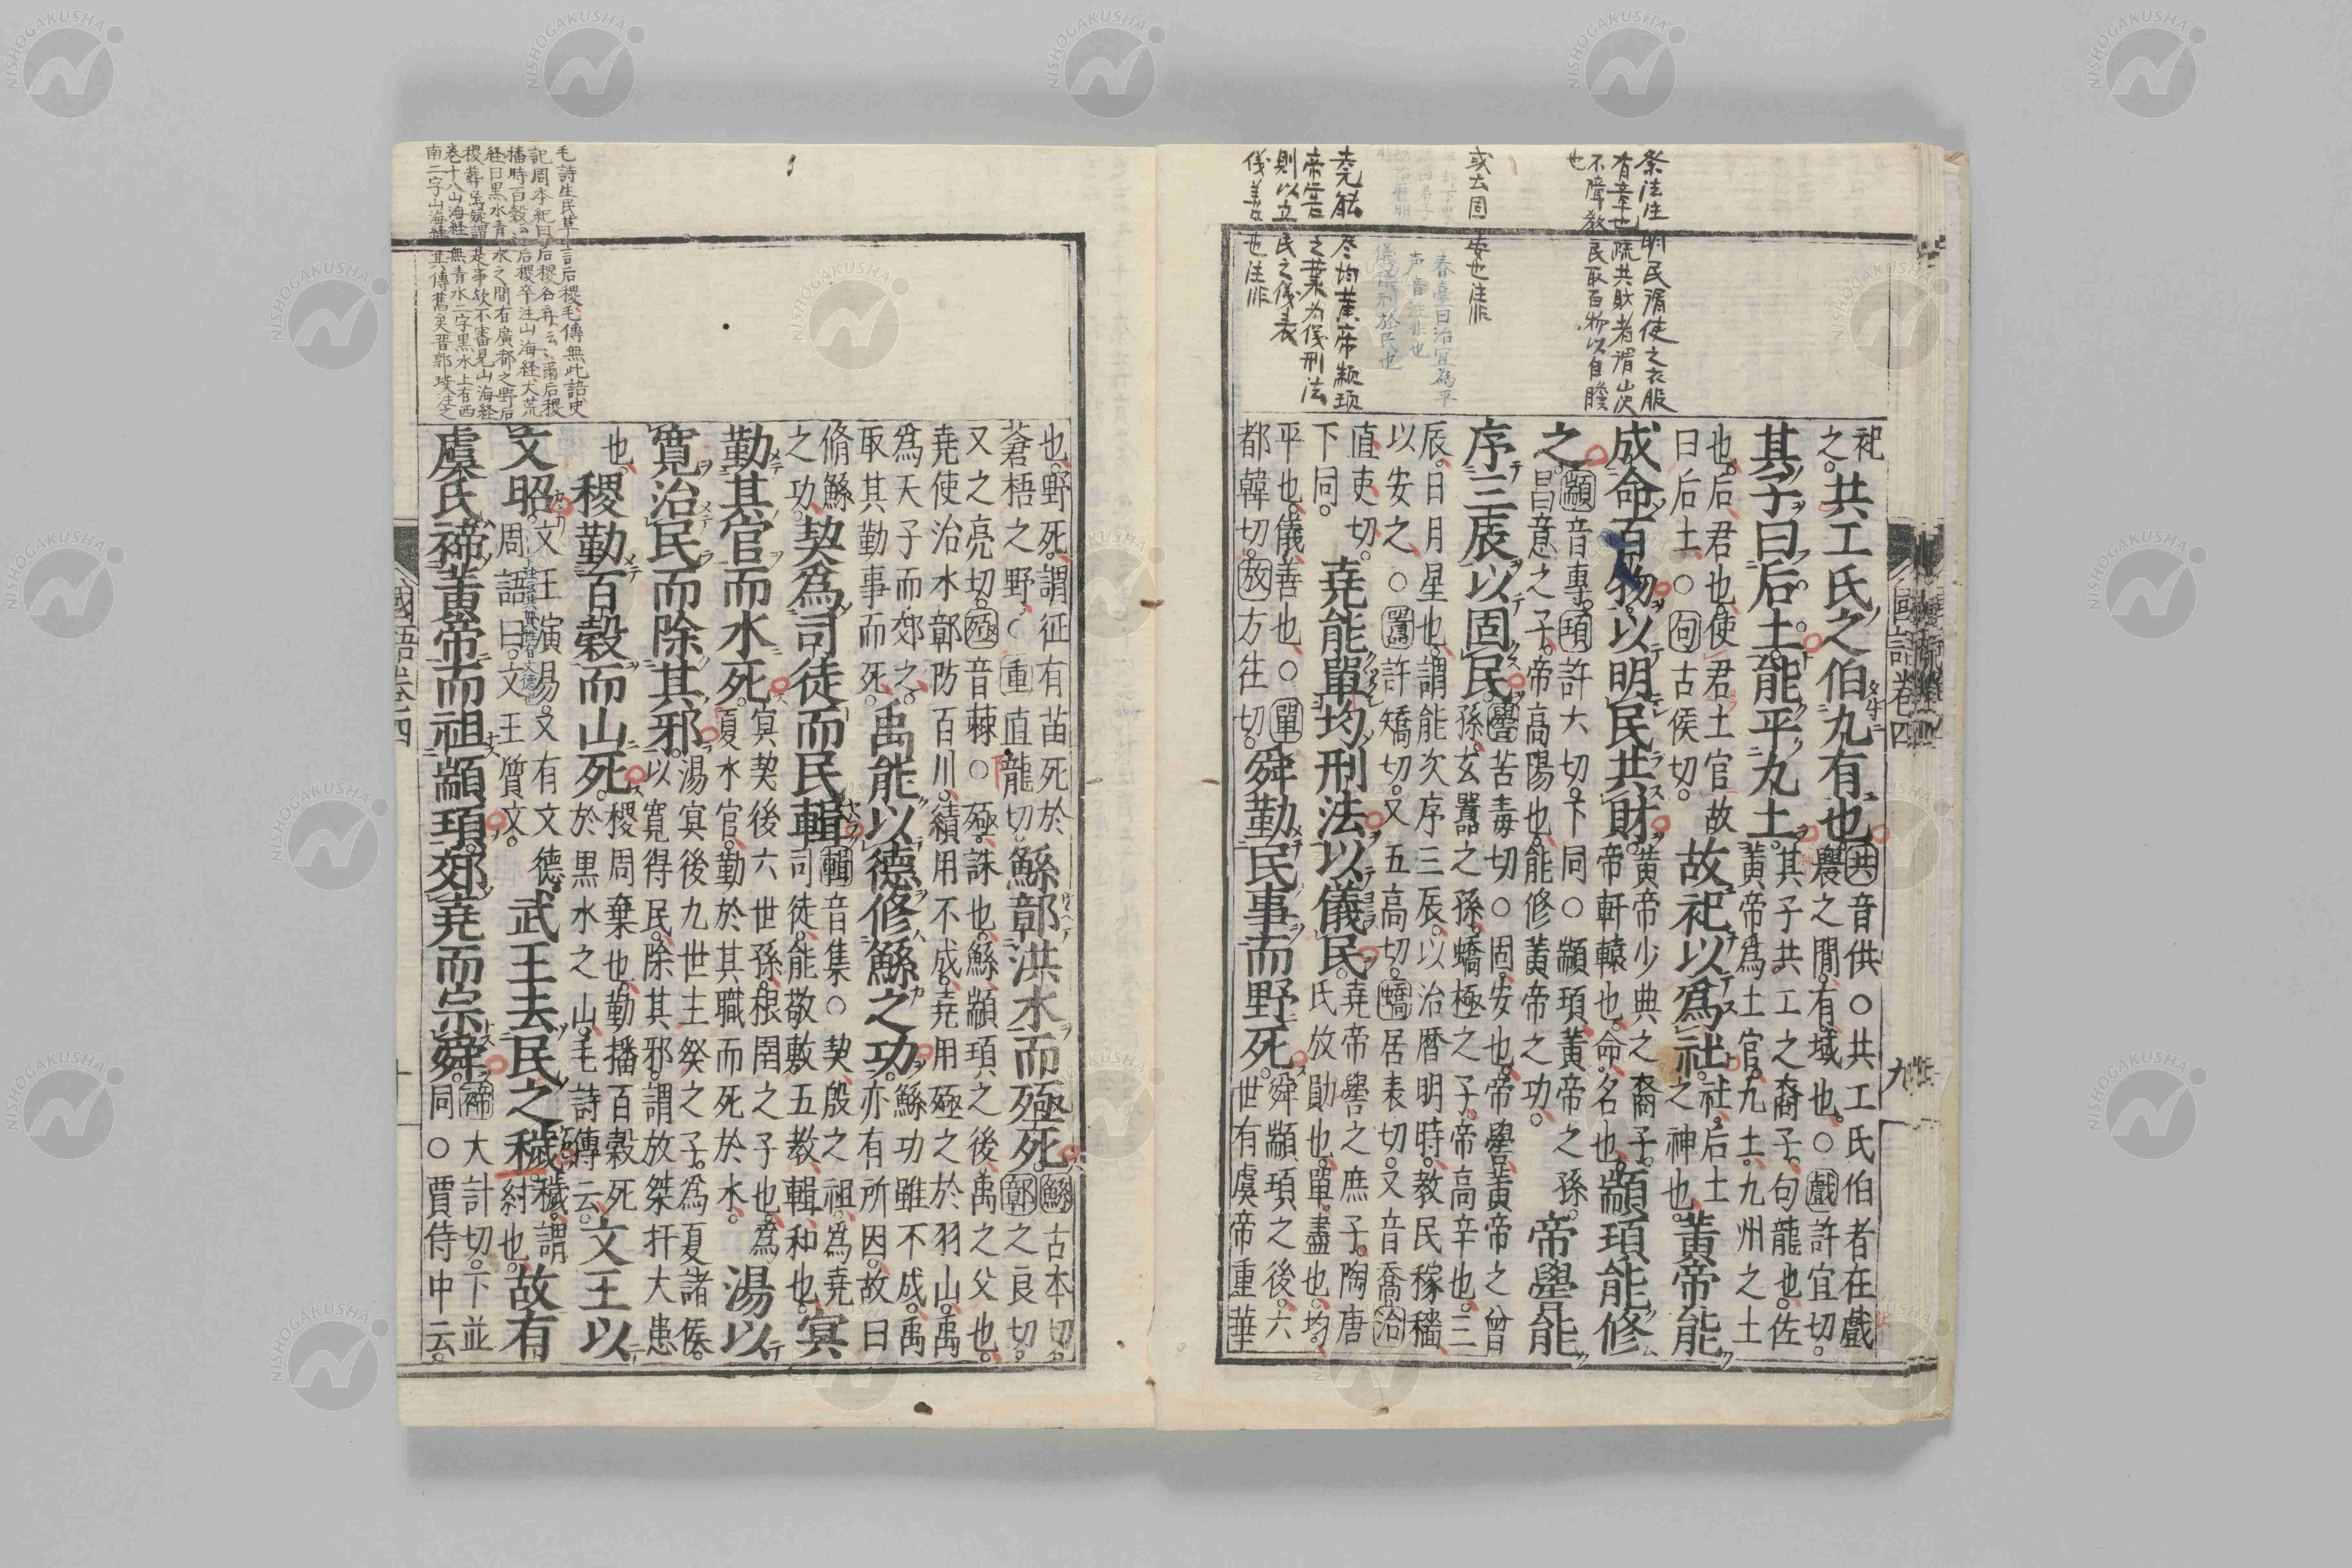 祭法注明民謂使之衣服
有章也疏共財者謂山次
不障教民取百物以自贍
也
或云固安也注非
春臺曰治宜為平
声音注非也
儀儀刑於民也
堯能尽均黄帝顓頊
帝嚳之業為儀刑法
則以立民之儀表
儀善也注非
祀
之。共工氏之伯九有也
共音供○共工氏伯者在戲
農之間。有域也。○戲許宜切。
其子曰后土。能平九土。
其子共工之裔子。句龍也。佐
黃帝爲土官。九土。九州之土
也。后君也。使君土官。故
曰后土。○句古侯切。
故祀以爲社。
社。后土
之神也。
黃帝能
成命百物。以明民共財。
黃帝少典之裔子。
帝軒轅也。命。名也。
顓頊能修
之。
顓音專。頊許六切。下同○顓頊黃帝之孫。
昌意之子。帝高陽也。能修黃帝之功。
帝嚳能
序三辰以固民。
嚳苦毒切○固。安也。帝嚳黃帝之曾
孫。玄囂之孫。蟜極之子。帝高辛也。三
辰。日月星也。謂能次序三辰。以治曆明時。教民稼穡
以安之○囂許矯切。又五高切。蟜居表切。又音喬治
直吏切。
下同。
堯能單均刑法以儀民。
堯帝嚳之庶子。陶唐
氏放勛也。單。盡也。均。
平也。儀善也。○單
都韓切。放方往切。
舜勤民事而野死。
舜顓頊之後。六
世有虞帝重華
國語卷四
九
毛詩生民草言后稷毛傳無此語史
記周本紀曰后稷名弃云云爾后稷
播時百穀云后稷卒注山海経大荒
経曰黒水青水之間有廣都之野后
稷葬焉疑謂是事欤不審見山海経
巻十八山海経無青水二字黒水上有西
南二字山海経其傳舊矣晋郭璞注之
也。野死。謂征有苗死於
蒼梧之野。○重直龍切
鯀鄣洪水而殛死。
鯀古本切。
鄣之良切。
又之亮切。殛音棘○殛。誅也。鯀。顓頊之後。禹之父也。
堯使治水鄣防百川。績用不成。堯用殛之於羽山。禹
爲天子而郊之。
取其勤事而死。
禹能以德修鯀之功。
鯀功雖不成。禹
亦有所因。故曰
脩鯀
之功。
契爲司徒而民輯
輯音集○契。殷之祖。爲堯
司徒。能敬敷五教。輯。和也。
冥
勤其官而水死。
冥契後六世孫。根圉之子也。爲
夏水官。勤於其職而死於水。
湯以
寬治民而除其邪。
湯冥後九世主癸之子。爲夏諸侯。
以寬得民。除其邪。謂放桀扞大患
也。
稷勤百穀而山死。
稷。周棄也。勤播百穀死
於黑水之山。毛詩傳云。
文王以
文昭。
文王演易。又有文德。
周語曰。文王質文。
武王去民之穢。
穢。謂
紂也。
故有
虞氏禘黃帝而祖顓頊。郊堯而宗舜。
禘大計切。下並
同○賈侍中云。
國語卷四